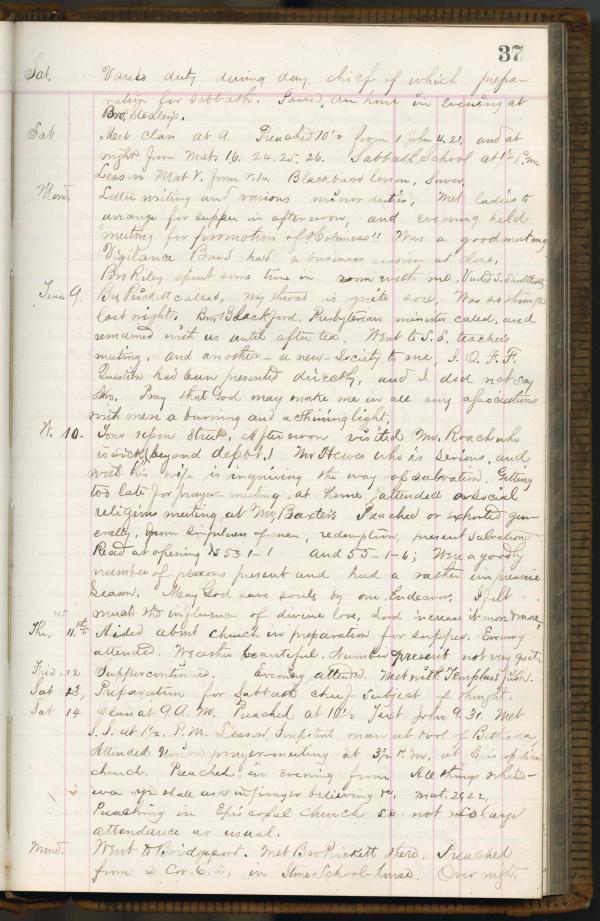 37
Sat. Varied duty during day, chief of which prepa-
ration for Sabbath. Passed an hour in evening at
Bro.
Sab Met class at 9. Preached 10½ from 1 John 4.21, and at
night from Mat. 16. 24, 25, 26. Sabbath School at 1½ P.M.
Lesson Mat V. from Blackboard lesson,
Mond. Letter writing and various minor duties, Met ladies to
arrange for supper in afternoon, and evening held
"meeting for promotion of Holiness" Was a good meeting
Vigilance Band had a business session at close.
Bro Riley spent some time in room with me.
Tues. 9. Bro Prickett called, my throat is quite sore, Was so though
last night. Bro. Blackford, Presbyterian minister called, and
remained with us until after tea. Went to S. S. teachers
meeting, and another - a new - Society to me, I. O. F. F.
Question had been presented directly, and I did not say
No. Pray that God may make me in all my associations
with men a burning and a shining light,
W. 10. Four upon Street, Afternoon visited Mr. Roach who
is sick, (beyond depot.) Mr Hewes who is serious, and
with his wife is inquiring the way of salvation. Getting
too late for prayer-meeting at home, attended a social
religious meeting at Mr. Baxter's Preached or exhorted gen-
erally, from sinfulness of man, redemption, present salvation
Read at opening Is 53 1-1 and 55-1-6; Were a goodly
number of persons present and had a rather impressive
season. May God save souls by our Endeavor, I felt
much the influence of divine love, Lord increase it more & more,
Thu. 11th Aided about church in preparation for supper. Evening
attended. Weather beautiful. Number present not very great.
Frid. 12 Supper continued. Evening attend. Met with Templars first.
Sat 13, Preparation for Sabbath chief subject of thought.
Sab 14 Class at 9 A. M. Preached at 10½ Text John 9. 31. Met
S.S. at 1½ P.M. Lesson Impotent man at Pool of Bethesda
Attended Union prayer-meeting at 3½ P.M. at Episcopalian
church. Preached in evening from All things whatso-
ever ye shall ask in prayer believing &c. Mat. 21, 22,
Preaching in Episcopal Church so not so large
attendance as usual.
Mond. Went to Bridgeport. Met Bro Prickett there. Preached
from 2 Cor. 6. 2, in Stone School-house. Over night